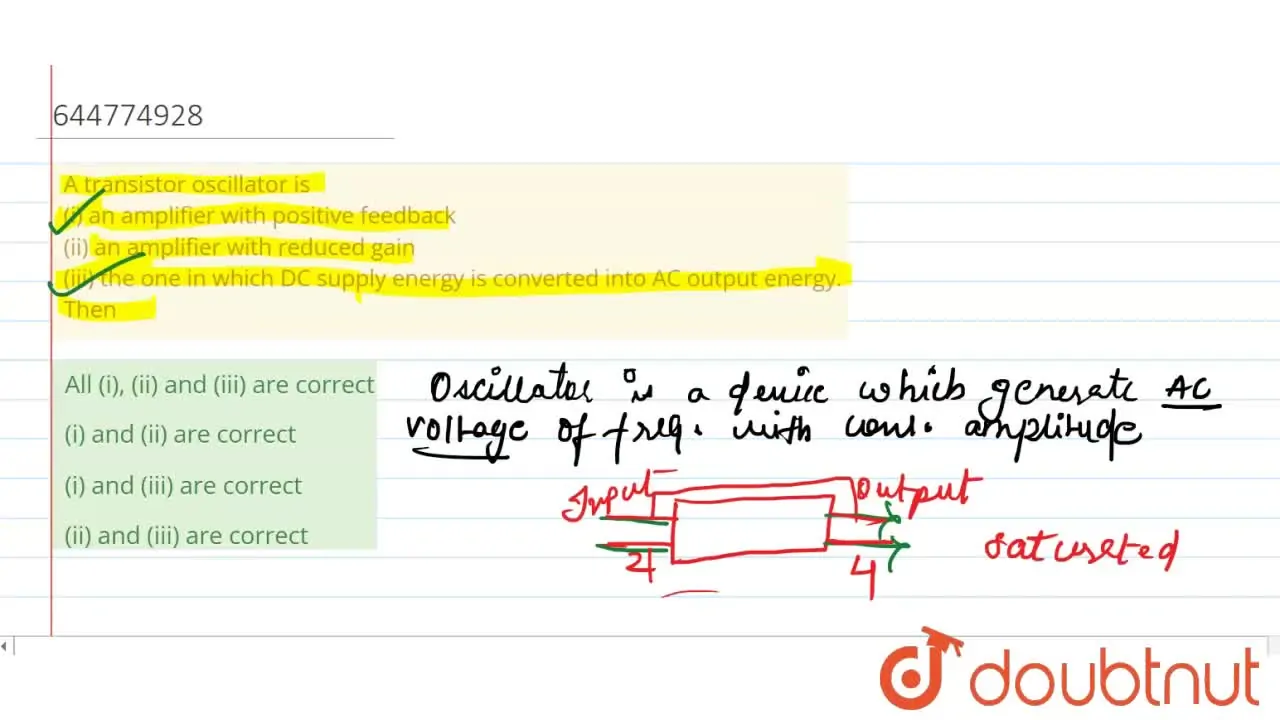 644774928
A transistor oscillator is
(i) an amplifier with positive feedback
(ii) an amplifier with reduced gain
(iii) the one in which DC supply energy is converted into AC output energy.
Then
All (i), (ii) and (iii) are correct
(i) and (ii) are correct
(i) and (iii) are correct
(ii) and (iii) are correct
Oscillator is a device which generate AC
voltage of freq. with cons. amplitude
Input Output
4
saturated
doubtnut